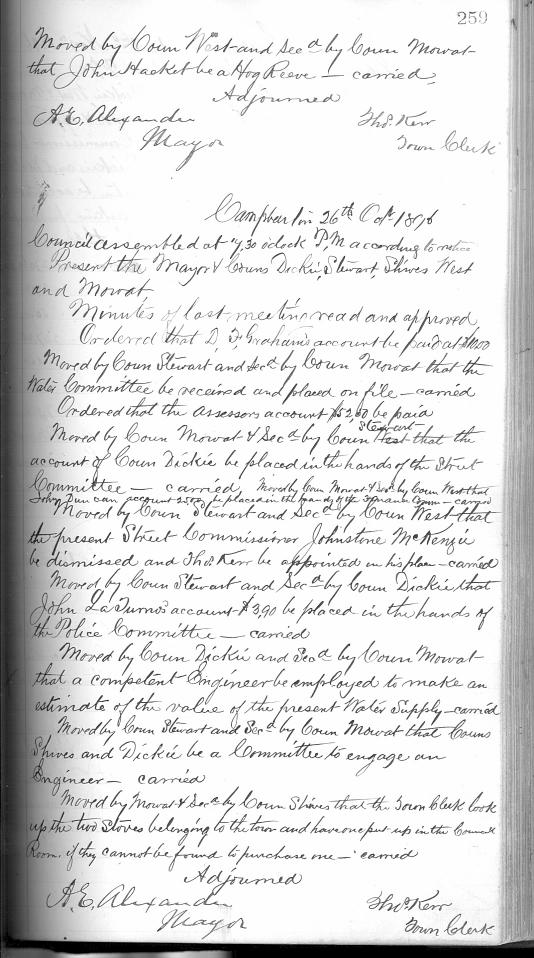 259
Moved by Coun West and Secd by Coun Mowat
that John Hacket be a Hog Reeve — carried
Adjourned
A.E. Alexander Thos. Kerr
Mayor Town Clerk
Campbellton 26th Oct 1896
Council assembled at 7,30 oclock P,M according to notice
Present the Mayor & Couns Dickie, Stewart, Shives West
and Mowat
Minutes of last meeting read and approved
Ordered that D, F, Grahams account be paid at
Moved by Coun Stewart and Secd by Coun Mowat that the
Water Committee be received and placed on file — carried
Ordered that the assessors account $52,50 be paid
Stewart
Moved by Coun Mowat & Secd by Coun West that the
account of Coun Dickie be placed in the hands of the Street
Committee — carried, Moved by Coun Mowat & Secd by Coun West that
John Duncan account 2500 be placed in the hands of the Finance Comm — carried
Moved by Coun Stewart and Secd by Coun West that
the present Street Commissioner Johnstone McKenzie
be dismissed and Thos. Kerr be appointed in his place — carried
Moved by Coun Stewart and Secd by Coun Dickie that
John account $3,90 be placed in the hands of
the Police Committee — carried
Moved by Coun Dickie and Secd by Coun Mowat
that a competent Engineer be employed to make an
estimate of the value of the present Water Supply — carried
Moved by Coun Stewart and Secd by Coun Mowat that Couns
Shives and Dickie be a Committee to engage an
Engineer — carried
Moved by Mowat & Secd by Coun Shives that the Town Clerk look
up the two Stoves belonging to the town and have one put up in the Council
Room, if they cannot be found to purchase one — carried
Adjourned
A.E. Alexander Thos. Kerr
Mayor Town Clerk